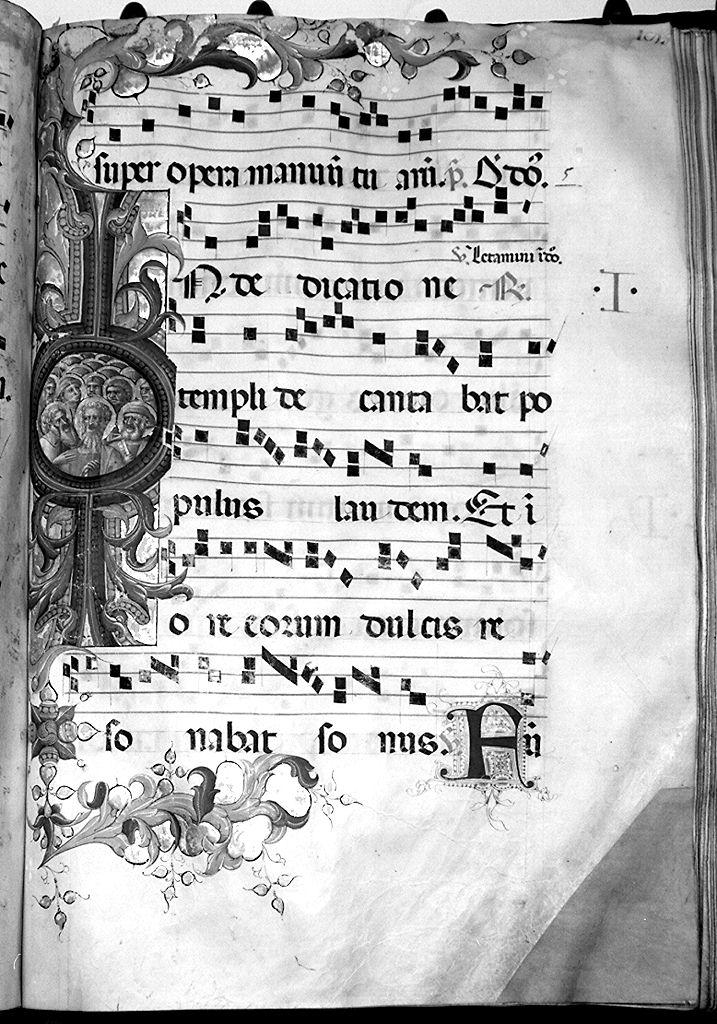 super opera manuū tu arū. p̄. Qđō.
℣. Letamini ī dño.
IN de dicatio ne ℟.
· I ·
templi de canta bat po
pulus laudem. Et ī
o re eorum dulcis re
so nabat so nus. Añ